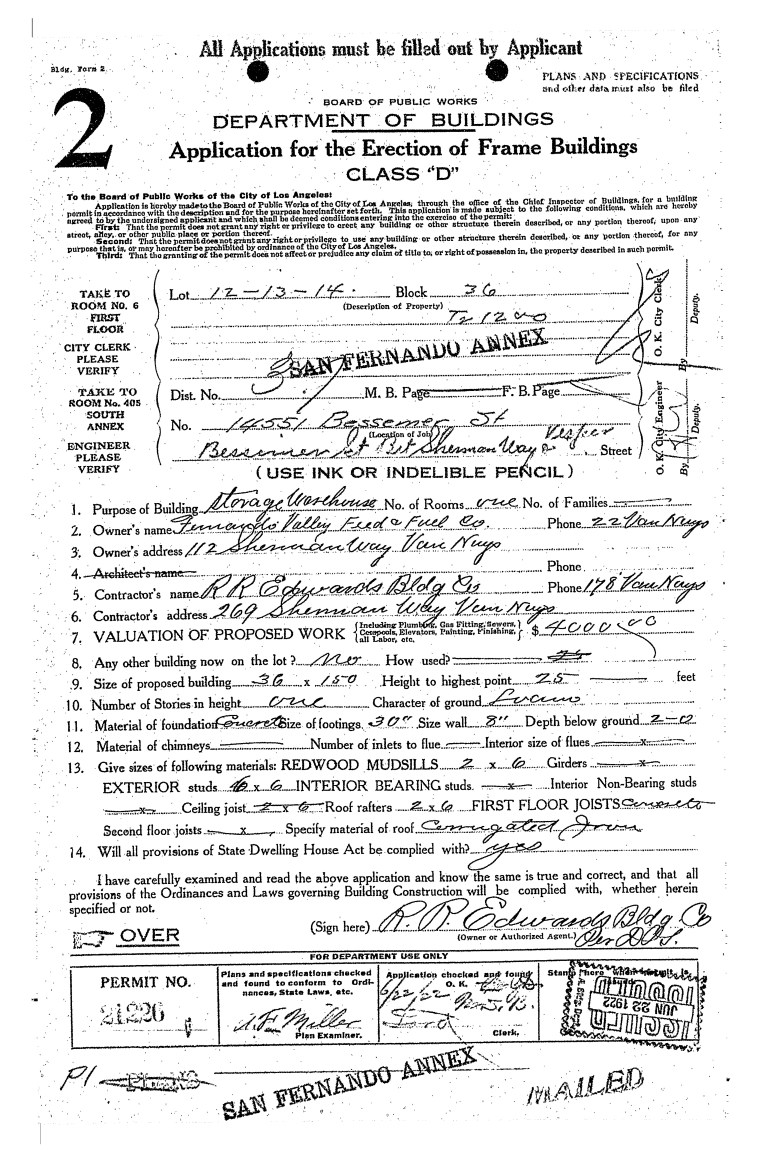 All Applications must be filled out by Applicant
Bldg. Form 2
PLANS AND SPECIFICATIONS
and other data must also be filed
2
BOARD OF PUBLIC WORKS
DEPARTMENT OF BUILDINGS
Application for the Erection of Frame Buildings
CLASS "D"
To the Board of Public Works of the City of Los Angeles:
Application is hereby made to the Board of Public Works of the City of Los Angeles, through the office of the Chief Inspector of Buildings, for a building
permit in accordance with the description and for the purpose hereinafter set forth. This application is made subject to the following conditions, which are hereby
agreed to by the undersigned applicant and which shall be deemed conditions entering into the exercise of the permit:
First: That the permit does not grant any right or privilege to erect any building or other structure therein described, or any portion thereof, upon any
street, alley, or other public place or portion thereof.
Second: That the permit does not grant any right or privilege to use any building or other structure therein described, or any portion thereof, for any
purpose that is, or may hereafter be prohibited by ordinance of the City of Los Angeles.
Third: That the granting of the permit does not affect or prejudice any claim of title to, or right of possession in, the property described in such permit.
TAKE TO
ROOM No. 6
FIRST
FLOOR
CITY CLERK
PLEASE
VERIFY
TAKE TO
ROOM No. 405
SOUTH
ANNEX
ENGINEER
PLEASE
VERIFY
Lot 12-13-14. Block 36
(Description of Property)
Tr 1200
SAN FERNANDO ANNEX
Dist. No. M. B. Page F. B. Page
No. 14551 Bessemer St
(Location of Job)
Bessemer St Bet Sherman Way & Vesper Street
O. K. City Clerk
By Deputy.
O. K. City Engineer
By Deputy.
(USE INK OR INDELIBLE PENCIL)
1. Purpose of Building Storage Warehouse No. of Rooms one No. of Families
2. Owner's name Fernando Valley Feed & Fuel Co. Phone 22 Van Nuys
3. Owner's address 112 Sherman Way Van Nuys
4. Architect's name Phone
5. Contractor's name R R Edwards Bldg Co Phone 178 Van Nuys
6. Contractor's address 269 Sherman Way Van Nuys
7. VALUATION OF PROPOSED WORK {Including Plumbing, Gas Fitting, Sewers, Cesspools, Elevators, Painting, Finishing, all Labor, etc.} $ 4000.00
8. Any other building now on the lot? No How used?
9. Size of proposed building 36 x 150 Height to highest point 25 feet
10. Number of Stories in height one Character of ground Loam
11. Material of foundation Concrete Size of footings 30" Size wall 8" Depth below ground 2-0
12. Material of chimneys Number of inlets to flue Interior size of flues x
13. Give sizes of following materials: REDWOOD MUDSILLS 2 x 6 Girders x
EXTERIOR studs 6 x 6 INTERIOR BEARING studs x Interior Non-Bearing studs
x Ceiling joist 2 x 6 Roof rafters 2 x 6 FIRST FLOOR JOISTS Concrete
Second floor joists x Specify material of roof Corrugated Iron
14. Will all provisions of State Dwelling House Act be complied with? yes
I have carefully examined and read the above application and know the same is true and correct, and that all
provisions of the Ordinances and Laws governing Building Construction will be complied with, whether herein
specified or not.
(Sign here) R. R. Edwards Bldg Co
(Owner or Authorized Agent.) Per D.P.S.
OVER
FOR DEPARTMENT USE ONLY
PERMIT NO.
21226
Plans and specifications checked
and found to conform to Ordi-
nances, State Laws, etc.
A. F. Miller
Plan Examiner.
Application checked and found
O. K.
6/22/22
Ford
Clerk.
Stamp here when
JUN 22 1922
Pl Plans
SAN FERNANDO ANNEX
MAILED